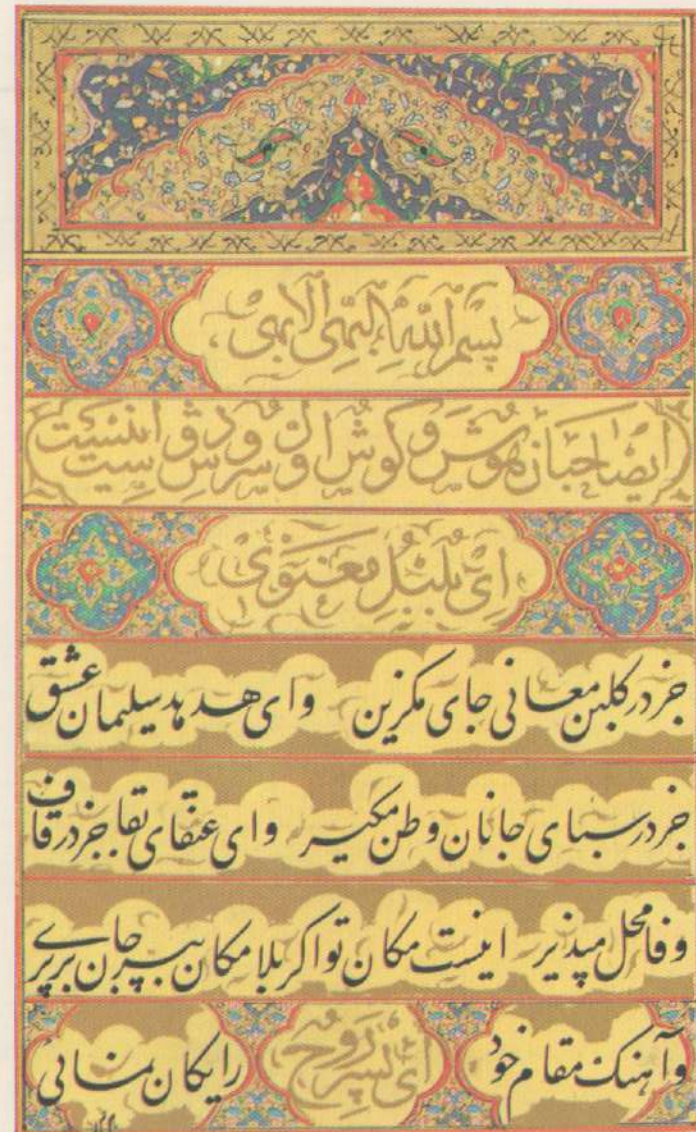 بِسْمِ اللهِ البَهِیِّ الابهی
ایصاحبان هوش و کوش اوّل سرود دوست اینست
ای بلبل معنوی
جز در کلبن معانی جای مکزین و ای هدهد سلیمان عشق
جز در سبای جانان وطن مکیر و ای عنقای بقا جز در قاف
وفا محل مپذیر اینست مکان تو اکر بلا مکان بپر جان بر پری
و آهنک مقام خود رایکان نمائی
ای پسر روح